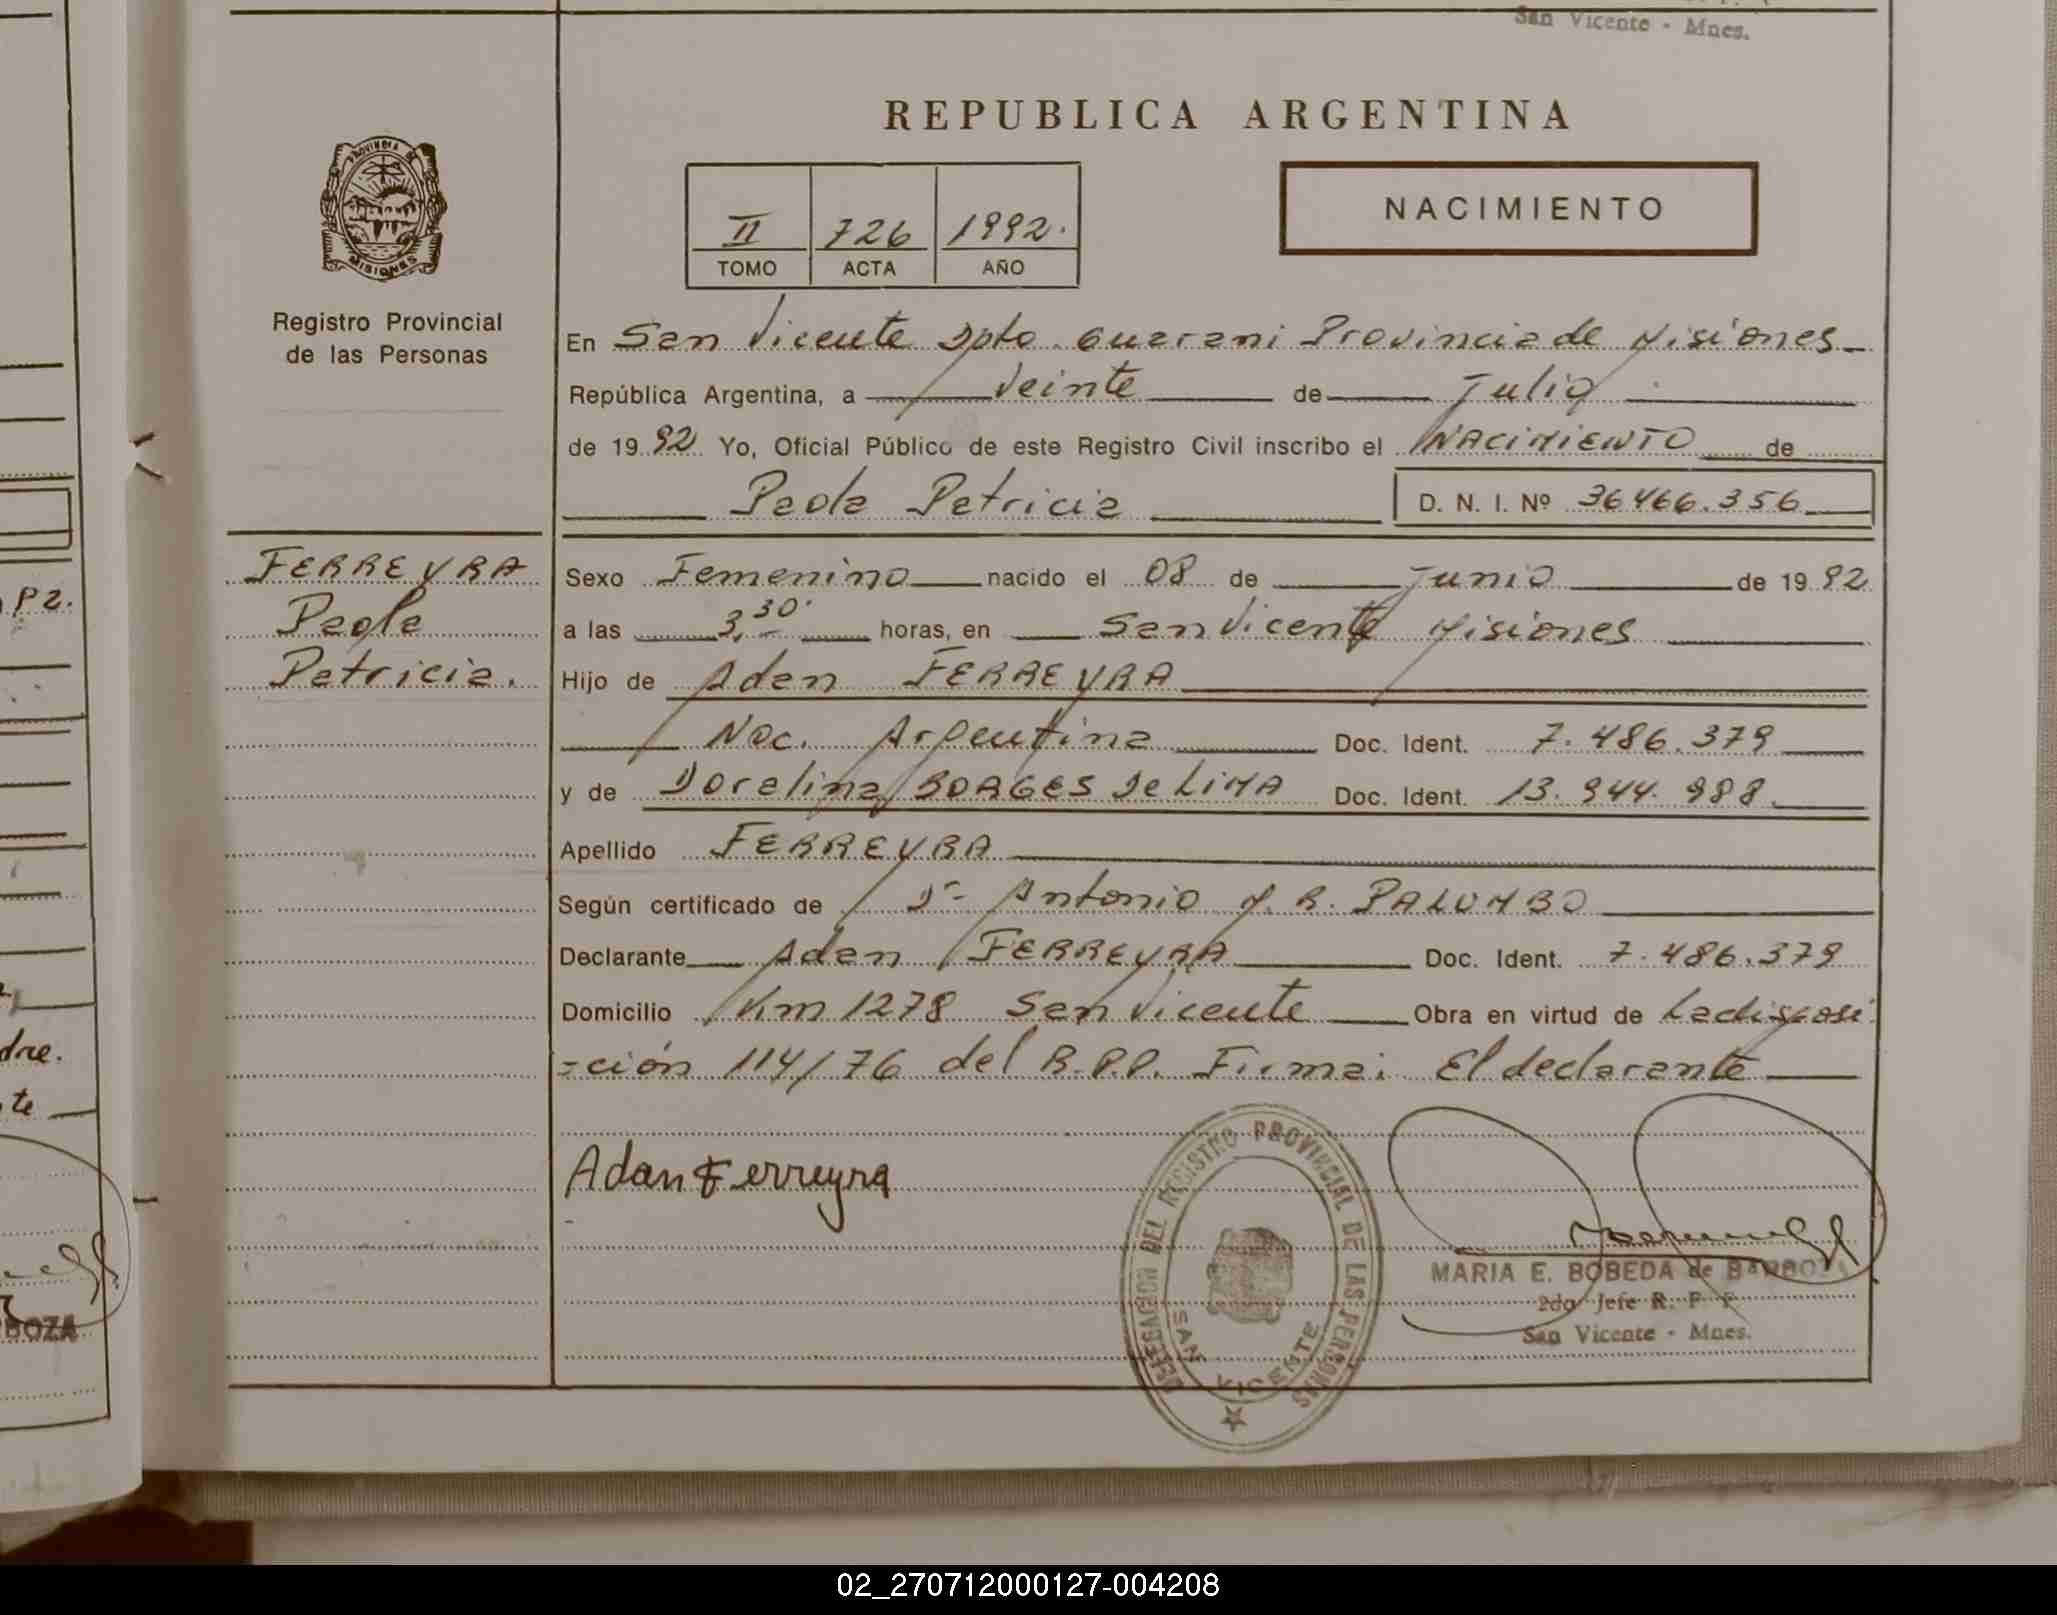 San Vicente - Mnes.
REPUBLICA ARGENTINA
PROVINCIA DE
MISIONES
II 726 1992.
TOMO ACTA AÑO
NACIMIENTO
Registro Provincial
de las Personas
En San Vicente Dpto. Guarani Provincia de Misiones
República Argentina, a veinte de Julio
de 19 92 Yo, Oficial Público de este Registro Civil inscribo el NACIMIENTO de
Paola Patricia D. N. I. Nº 36466.356
FERREYRA
Paola
Patricia.
Sexo Femenino nacido el 08 de Junio de 19 92
a las 3,30 horas, en San Vicente Misiones
Hijo de Adan FERREYRA
Nac. Argentina Doc. Ident. 7.486.379
y de Dorelina BORGES De LIMA Doc. Ident. 13.944.988
Apellido FERREYRA
Según certificado de Dr Antonio M. R. PALUMBO
Declarante Adan FERREYRA Doc. Ident. 7.486.379
Domicilio Km 1278 San Vicente Obra en virtud de La disposi
=ción 114/76 del R.P.P. Firma: El declarante
Adan Ferreyra
DELEGACION DEL REGISTRO PROVINCIAL DE LAS PERSONAS
SAN VICENTE
MARIA E. BOBEDA de BARBOZA
2do Jefe R. P. P.
San Vicente - Mnes.
P2.
dre.
te
BOZA
02_270712000127-004208